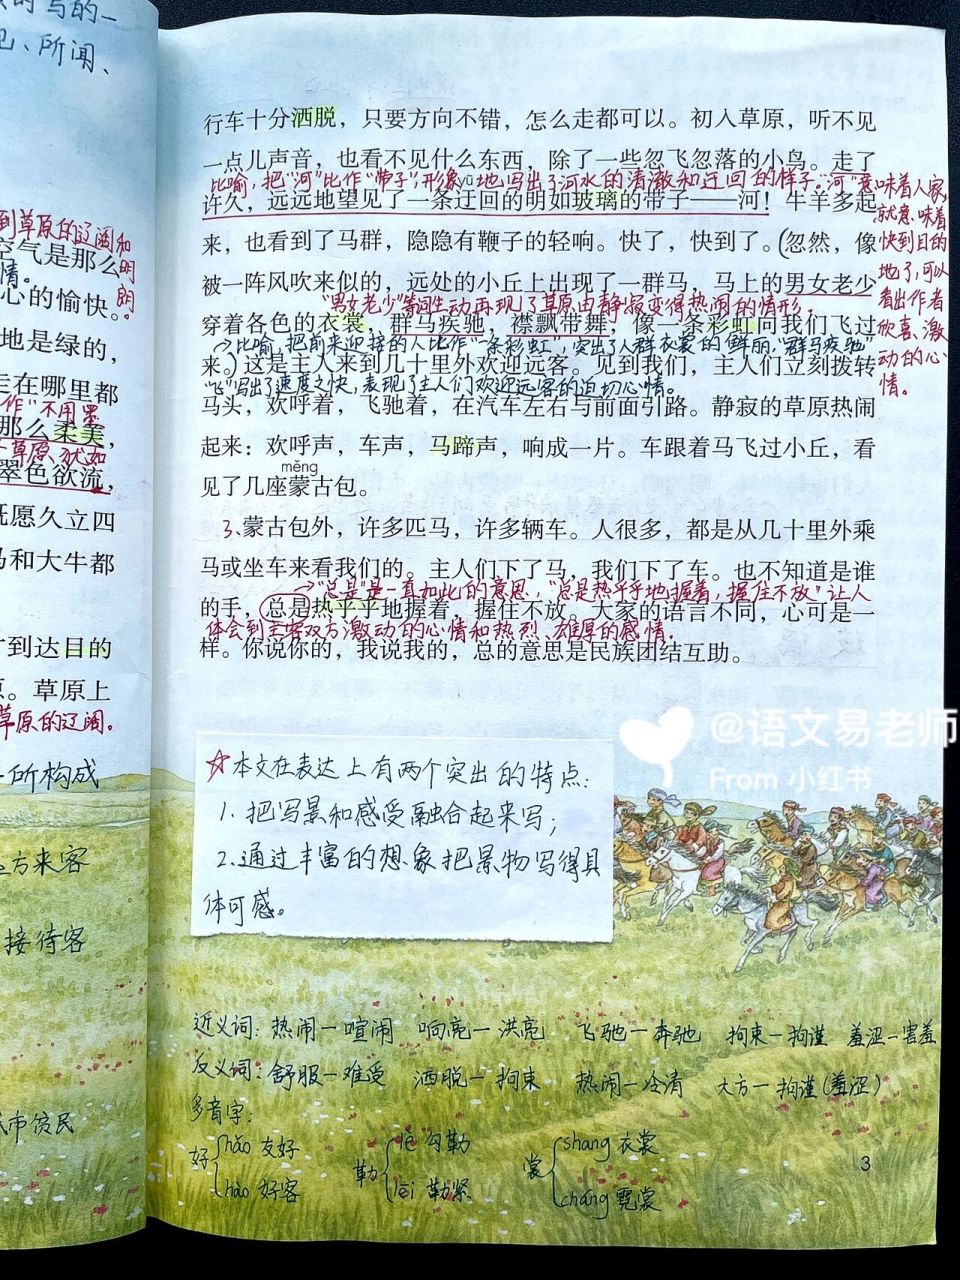 写的一
见、所闻、
到草原的辽阔和
空气是那么
明朗
情。
心的愉快。
地是绿的，
走在哪里都
作"不用墨
那么柔美，
草原，犹如
翠色欲流，
既愿久立四
马和大牛都
才到达目的
原。草原上
草原的辽阔。
所构成
方来客
接待客
行车十分洒脱，只要方向不错，怎么走都可以。初入草原，听不见
一点儿声音，也看不见什么东西，除了一些忽飞忽落的小鸟。走了
比喻，把"河"比作"带子"，形象地写出了河水的清澈和迂回的样子。"河"意味着人家，就意味着快到目的地了，可以看出作者欣喜、激动的心情。
yū
许久，远远地望见了一条迂回的明如玻璃的带子——河！牛羊多起
来，也看到了马群，隐隐有鞭子的轻响。快了，快到了。(忽然，像
被一阵风吹来似的，远处的小丘上出现了一群马，马上的男女老少
"男女老少"等词生动再现了草原由静寂变得热闹的情形。
穿着各色的衣裳，群马疾驰，襟飘带舞，像一条彩虹向我们飞过
→比喻，把前来迎接的人比作"一条彩虹"，突出了人群衣裳的鲜丽，"群马疾驰"
来。)这是主人来到几十里外欢迎远客。见到我们，主人们立刻拨转
"飞"写出了速度之快，表现了主人们欢迎远客的迫切心情。
马头，欢呼着，飞驰着，在汽车左右与前面引路。静寂的草原热闹
起来：欢呼声，车声，马蹄声，响成一片。车跟着马飞过小丘，看
měng
见了几座蒙古包。
3、蒙古包外，许多匹马，许多辆车。人很多，都是从几十里外乘
马或坐车来看我们的。主人们下了马，我们下了车。也不知道是谁
→"总是"是一直如此的意思，"总是热乎乎地握着，握住不放"让人
的手，总是热乎乎地握着，握住不放。大家的语言不同，心可是一
体会到主客双方激动的心情和热烈、雄厚的感情.
样。你说你的，我说我的，总的意思是民族团结互助。
@语文易老师
From 小红书
☆本文在表达上有两个突出的特点：
1、把写景和感受融合起来写；
2、通过丰富的想象把景物写得具
体可感。
近义词：热闹—喧闹 响亮—洪亮 飞驰—奔驰 拘束—拘谨 羞涩—害羞
反义词：舒服—难受 洒脱—拘束 热闹—冷清 大方—拘谨(羞涩)
多音字：
好{hǎo 友好 勒{lè 勾勒 裳{shang 衣裳
hào 好客 lēi 勒紧 cháng 霓裳
3